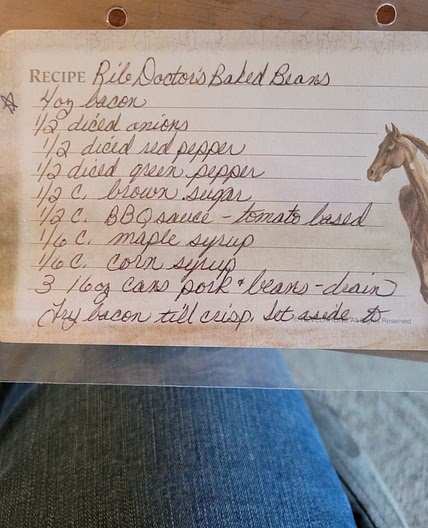 RECIPE Rib Doctor's Baked Beans
4oz bacon
1/2 diced onions
1/2 diced red pepper
1/2 diced green pepper
1/2 c. brown sugar
1/2 c. BBQ sauce - tomato based
1/6 c. maple syrup
1/6 c. corn syrup
3 16oz cans pork & beans - drain
Fry bacon till crisp, set aside to
All Rights Reserved